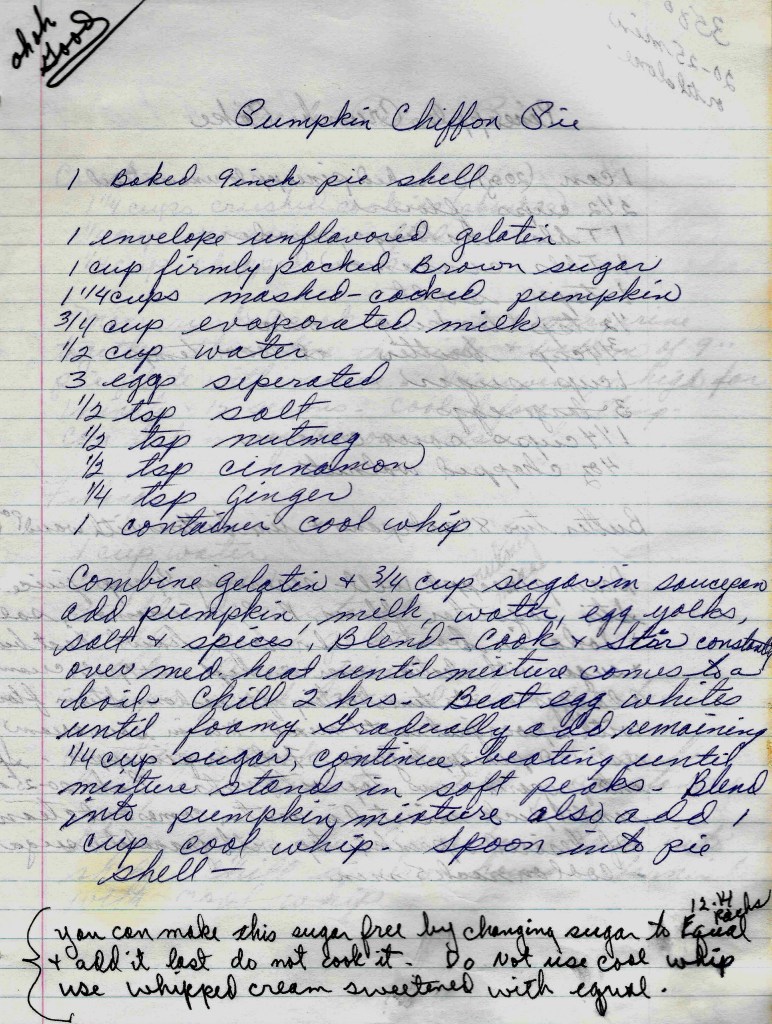 ohoh
Good
Pumpkin Chiffon Pie
1 Baked 9inch pie shell
1 envelope unflavored gelatin
1 cup firmly packed Brown sugar
1 1/4 cups mashed-cooked pumpkin
3/4 cup evaporated milk
1/2 cup water
3 eggs seperated
1/2 tsp salt
1/2 tsp nutmeg
1/2 tsp cinnamon
1/4 tsp ginger
1 container cool whip
Combine gelatin + 3/4 cup sugar in saucepan
add pumpkin, milk, water, egg yolks,
salt + spices, Blend - Cook + Stir constantly
over med. heat until mixture comes to a
boil- Chill 2 hrs- Beat egg whites
until foamy Gradually add remaining
1/4 cup sugar, continue beating until
mixture stands in soft peaks- Blend
into pumpkin mixture also add 1
cup cool whip- Spoon into pie
shell-
12-14
Packs
you can make this sugar free by changing sugar to Equal
+ add it last do not cook it- Do Not use cool whip
use whipped cream sweetened with equal.